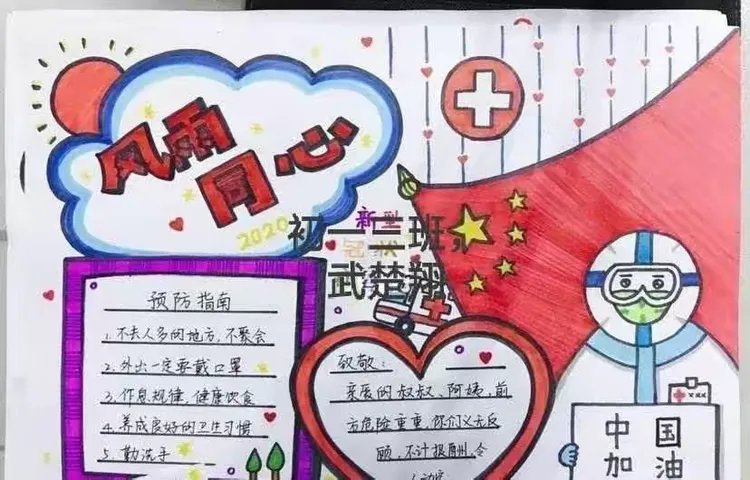 风雨
同心
2020
新型
冠状
初一三班，
武楚翔
预防指南
1、不去人多的地方，不聚会
2、外出一定要戴口罩
3、作息规律，健康饮食
4、养成良好的卫生习惯
5、勤洗手
致敬：
亲爱的叔叔、阿姨，前
方危险重重，你们义无反
顾，不计报酬，令
中国
加油